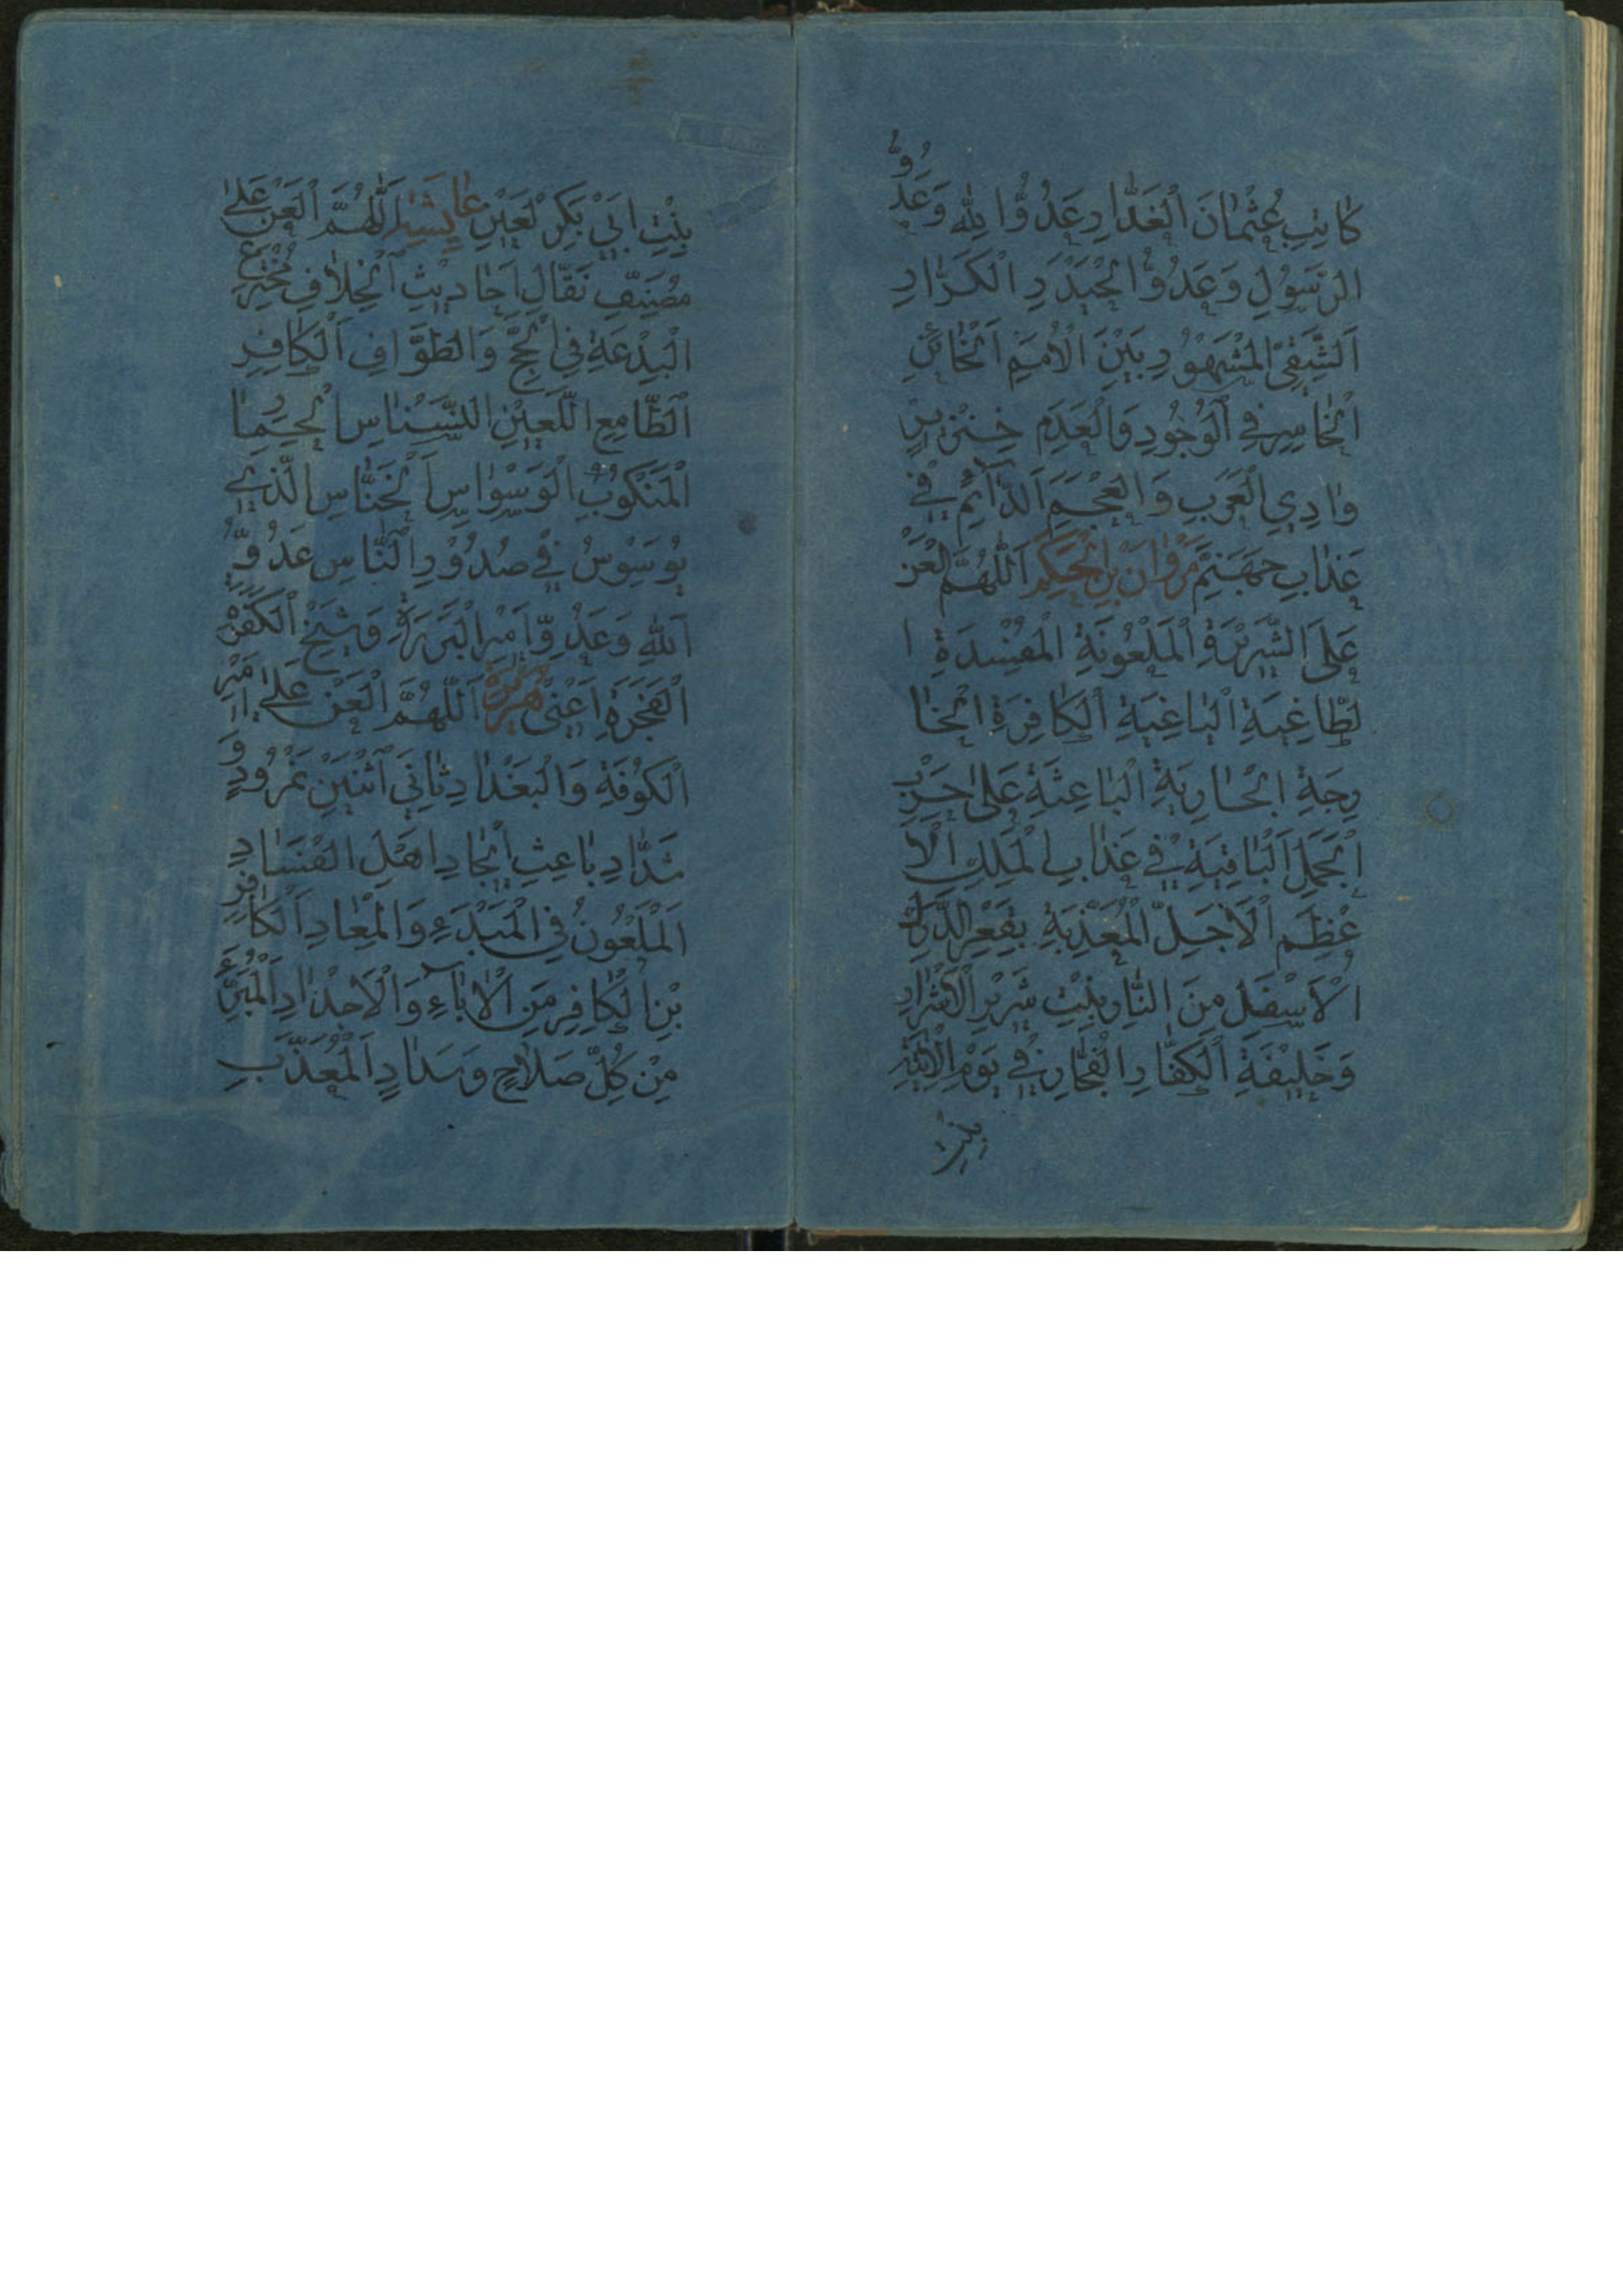 كَاتِبِ عُثْمَانَ الْغَدَّارِ عَدُوُّ اللهِ وَعَدُوُّ
الرَّسُولِ وَعَدُوُّ الْحَيْدَرِ الْكَرَّارِ
اَلشَّقِيِّ الْمَشْهُوْرِ بَيْنَ الْاُمَمِ اَلْخَائِنِ
الْخَاسِرِ فِي الْوُجُودِ وَالْعَدَمِ خِنْزِيرِ
وَادِي الْعَرَبِ وَالْعَجَمِ اَلدَّآئِمِ فِيْ
عَذَابِ جَهَنَّمَ مَرْوَانَ بْنِ الْحَكَمِ اَللّٰهُمَّ الْعَنْ
عَلَى الشَّرِيْرَةِ الْمَلْعُوْنَةِ الْمُفْسِدَةِ ا
لطَّاغِيَةِ الْبَاغِيَةِ الْكَافِرَةِ الْخَا
رِجَةِ الْحَارِبَةِ الْبَاعِثَةِ عَلَى حَرْبِ
الْجَمَلِ الْبَاقِيَةِ فِيْ عَذَابِ الْمَلِكِ الْاَ
عْظَمِ الْاَجَلِّ الْمُعَذَّبَةِ بِقَعْرِ الدَّرْكِ
الْاَسْفَلِ مِنَ النَّارِ بِنْتِ شَرِيْرِ الْاَشْرَارِ
وَخَلِيْفَةِ الْكُفَّارِ الْفُجَّارِ فِيْ يَوْمِ
بِنْتِ
بِنْتِ اَبِيْ بَكْرِ لَعِيْنِ عَايِشَه اَللّٰهُمَّ الْعَنْ عَلَى
مُصَنِّفِ نَقَّالِ اَحَادِيْثِ الْخِلَافِ مُخْتَرِعِ
الْبِدْعَةِ فِي الْحَجِّ وَالطَّوَافِ اَلْكَافِرِ
الطَّامِعِ اللَّعِيْنِ النَّسْنَاسِ الْحِمَارِ
الْمَنْكُوْبِ الْوَسْوَاسِ اَلْخَنَّاسِ الَّذِيْ
يُوَسْوِسُ فِيْ صُدُوْرِ النَّاسِ عَدُوِّ
اللهِ وَعَدُوِّ اَمِيْرِ الْبَرَرَةِ وَشَيْخِ الْكَفَرَةِ
الْفَجَرَةِ اَعْنِيْ هُرَيْرَةَ اَللّٰهُمَّ الْعَنْ عَلَى اَمِيْرِ
الْكُوْفَةِ وَالْبَغْدَادِ ثَانِي اثْنَيْنِ نَمْرُوْدٍ وَ
شَدَّادٍ بَاعِثِ اِيْجَادِ اَهْلِ الْفَسَادِ
اَلْمَلْعُوْنِ فِي الْمَبْدَءِ وَالْمَعَادِ اَلْكَافِرِ
بْنِ الْكَافِرِ مِنَ الْاٰبَآءِ وَالْاَجْدَادِ
مِنْ كُلِّ صَلَاحٍ وَسَدَادٍ اَلْمُعَذَّبِ